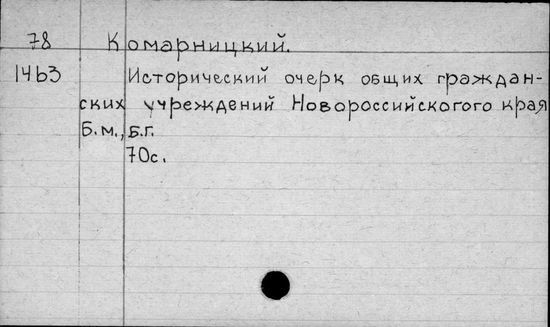 78 Комарницкий.
1463 Исторический очерк общих граждан-
ских учреждений Новороссийскогого края
Б.м., Б.г.
70с.